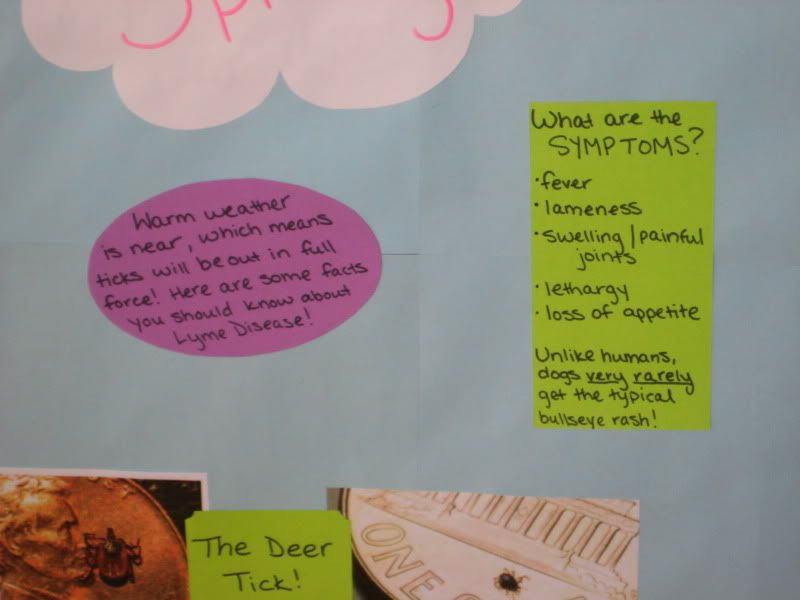 Warm weather
is near, which means
ticks will be out in full
force! Here are some facts
you should know about
Lyme Disease!
What are the
SYMPTOMS?
· fever
· lameness
· swelling/painful
joints
· lethargy
· loss of appetite
Unlike humans,
dogs very rarely
get the typical
bullseye rash!
The Deer
Tick!
ONE